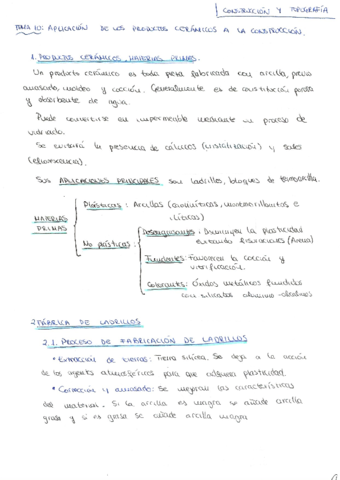 CONSTRUCCIÓN Y TOPOGRAFÍA
TEMA 10: APLICACIÓN DE LOS PRODUCTOS CERÁMICOS A LA CONSTRUCCIÓN.
1. PRODUCTOS CERÁMICOS, MATERIAS PRIMAS.
Un producto cerámico es toda pieza fabricada con arcilla, previo
amasado, moldeo y cocción. Generalmente es de constitución porosa
y absorbente de agua.
Puede convertirse en impermeable mediante un proceso de
vidriado.
Se evitará la presencia de caliches (cristalización) y sales
(eflorescencia).
Sus APLICACIONES PRINCIPALES son ladrillos, bloques de termoarcilla.
MATERIAS PRIMAS
Plásticas: Arcillas (caoliníticas, montmorilloníticas e
ilíticas)
No plásticas:
Desengrasantes: Disminuyen la plasticidad
evitando fisuraciones (Arena)
Fundentes: Favorecen la cocción y
vitrificación.
Colorantes: Óxidos metálicos fundidos
con silicatos alumino-alcalinos
2 FÁBRICA DE LADRILLOS
2.1. PROCESO DE FABRICACIÓN DE LADRILLOS
• Extracción de tierras: Tierra silícea. Se deja a la acción
de los agentes atmosféricos para que adquiera plasticidad
• Corrección y amasado: Se mejoran las características
del material. Si la arcilla es magra se añade arcilla
grasa y si es grasa se añade arcilla magra